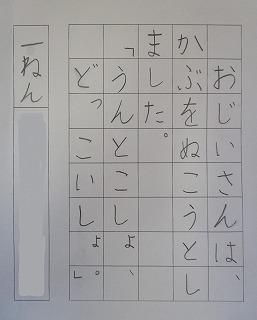 おじいさんは、
かぶをぬこうとし
ました。
「うんとこしょ、
どっこいしょ。」
一ねん